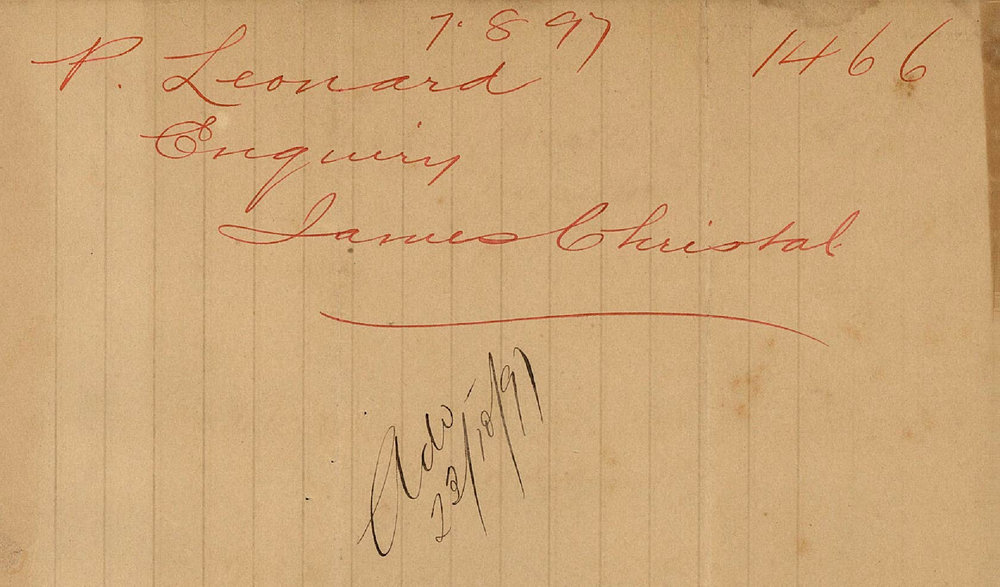 7.8.97 1466
P. Leonard
Enquiry
James Christal
Adv
23/10/97